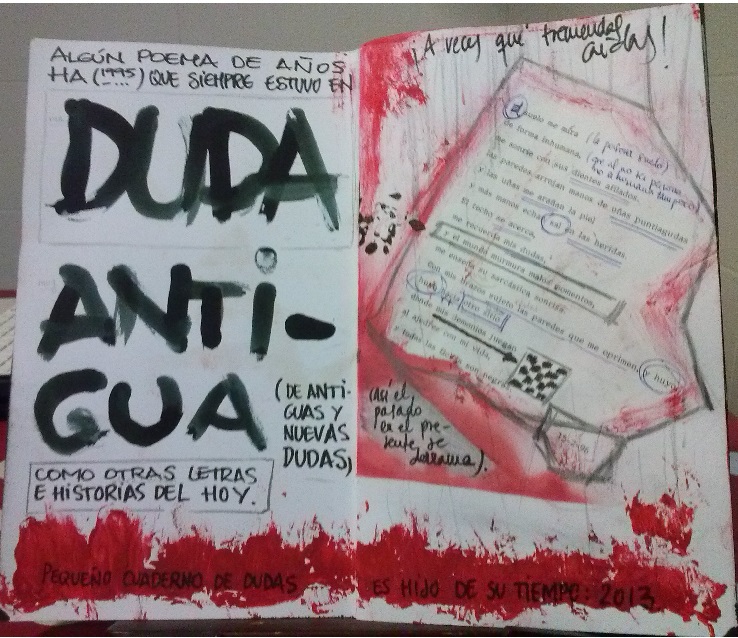 ALGÚN POEMA DE AÑOS
HA (1995) QUE SIEMPRE ESTUVO EN
DUDA
ANTI-
GUA
(DE ANTI-
GUAS Y
NUEVAS
DUDAS)
COMO OTRAS LETRAS
E HISTORIAS DEL HOY.
PEQUEÑO CUADERNO DE DUDAS
¡A veces qué tremendas
caídas!
suelo me mira (la persona suelo)
de forma inhumana,
me sonríe con sus dientes afilados.
las paredes arrojan manos de uñas puntiagudas
y las uñas me arañan la piel
y más manos echan sal en las heridas.
El techo se acerca,
me recuerda mis dudas,
y el mundo murmura malos momentos,
me enseña su sarcástica sonrisa
Con mis brazos sujeto las paredes que me oprimen, y huyo
otro sitio
donde mis demonios juegan
al ajedrez con mi vida,
y todas las fichas son negras.
(así el
pasado
en el pre-
sente se
derrama).
ES HIJO DE SU TIEMPO: 2013.